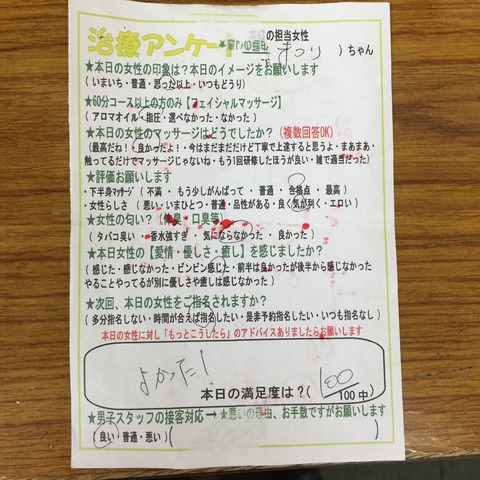 治療アンケート の担当女性 まつり )ちゃん
★本日の女性の印象は?本日のイメージをお願いします
( いまいち・普通・思った以上・いつもどうり )
★60分コース以上の方のみ【フェイシャルマッサージ】
( アロマオイル・指圧・選べなかった・なかった )
★本日の女性のマッサージはどうでしたか?(複数回答OK)
(最高だね!・良かったよ!・今はまだまだだけど丁寧で上達すると思うよ・まあまあ・
触ってるだけでマッサージじゃないね・もう1回研修したほうが良い・雑で適当だった)
★評価お願いします
・下半身マッサージ ( 不満 ・ もう少しがんばって ・ 普通 ・ 合格点 ・ 最高 )
・女性らしさ ( 悪い・いまひとつ・普通・品性がある・良く気が利く・エロい )
★女性の匂い?(体臭・口臭等)
( タバコ臭い ・香水強すぎ ・ 気にならなかった ・ 良かった )
★本日女性の【愛情・優しさ・癒し】を感じましたか?
( 感じた・感じなかった・ビンビン感じた・前半は良かったが後半から感じなかった
やることやってるが別に優しさや癒しは感じなかった )
★次回、本日の女性をご指名されますか?
( 多分指名しない・時間が合えば指名したい・是非予約指名したい・いつも指名なし )
本日の女性に対し「もっとこうしたら」のアドバイスありましたらお願いします
よかった!
本日の満足度は?( 100 / 100中 )
★男子スタッフの接客対応 → ★悪いの理由、お手数ですがお願いします
( 良い・普通・悪い ) ( )